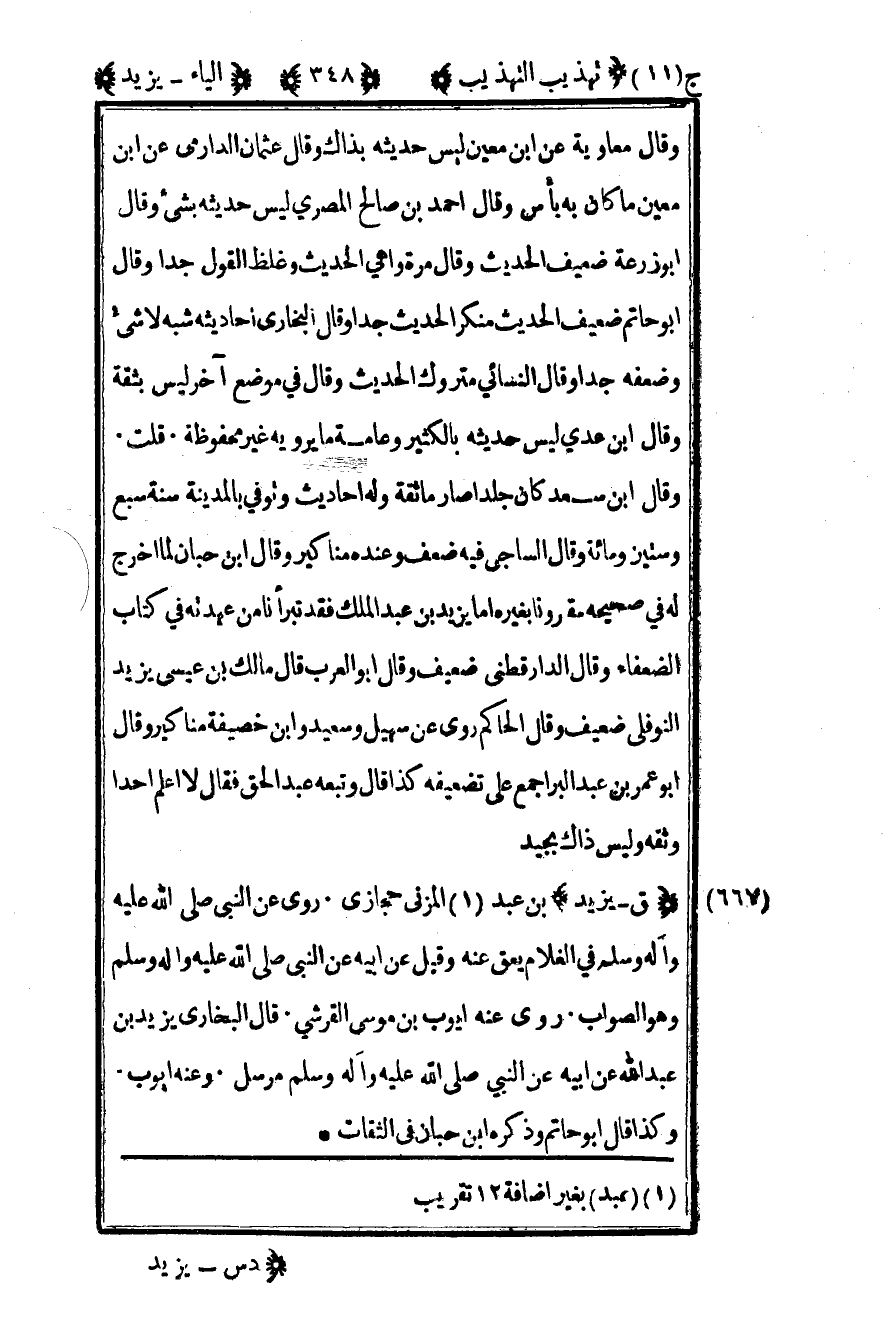 ج (١١) ﴿ تهذيب التهذيب ﴾ ﴿ ٣٤٨ ﴾ ﴿ الياء ـ يزيد ﴾
وقال معاوية عن ابن معين ليس حديثه بذاك وقال عثمان الدارمى عن ابن
معين ما كان به بأس وقال احمد بن صالح المصري ليس حديثه بشئ وقال
ابو زرعة ضعيف الحديث وقال مرة واهي الحديث وغلظ القول جدا وقال
ابو حاتم ضعيف الحديث منكر الحديث جدا وقال البخارى احاديثه شبه لا شئ
وضعفه جدا وقال النسائي متروك الحديث وقال في موضع آخر ليس بثقة
وقال ابن عدي ليس حديثه بالكثير وعامة ما يرويه غير محفوظة ٠ قلت ٠
وقال ابن سعد كان جلدا صارما ثقة وله احاديث وتوفي بالمدينة سنة سبع
وستين ومائة وقال الساجى فيه ضعف وعنده مناكير وقال ابن حبان لما اخرج
له في صحيحه مقرونا بغيره اما يزيد بن عبد الملك فقد تبرأنا من عهدته في كتاب
الضعفاء وقال الدارقطنى ضعيف وقال ابو العرب قال مالك بن عيسى يزيد
النوفلى ضعيف وقال الحاكم روى عن سهيل وسعيد وابن خصيفة مناكير وقال
ابو عمر بن عبد البر اجمع على تضعيفه كذا قال وتبعه عبد الحق فقال لا اعلم احدا
وثقه وليس ذاك بجيد
(٦٦٧) ﴿ ق ـ يزيد ﴾ بن عبد (١) المزنى حجازى ٠ روى عن النبي صلى الله عليه
وآله وسلم في الغلام يعق عنه وقيل عن ابيه عن النبي صلى الله عليه واله وسلم
وهو الصواب ٠ روى عنه ايوب بن موسى القرشي ٠ قال البخارى يزيد بن
عبد الله عن ابيه عن النبي صلى الله عليه وآله وسلم مرسل ٠ وعنه ايوب ٠
وكذا قال ابو حاتم وذكره ابن حبان فى الثقات •
(١) (عبد) بغير اضافة ١٢ تقريب
﴿ دس ـ يزيد